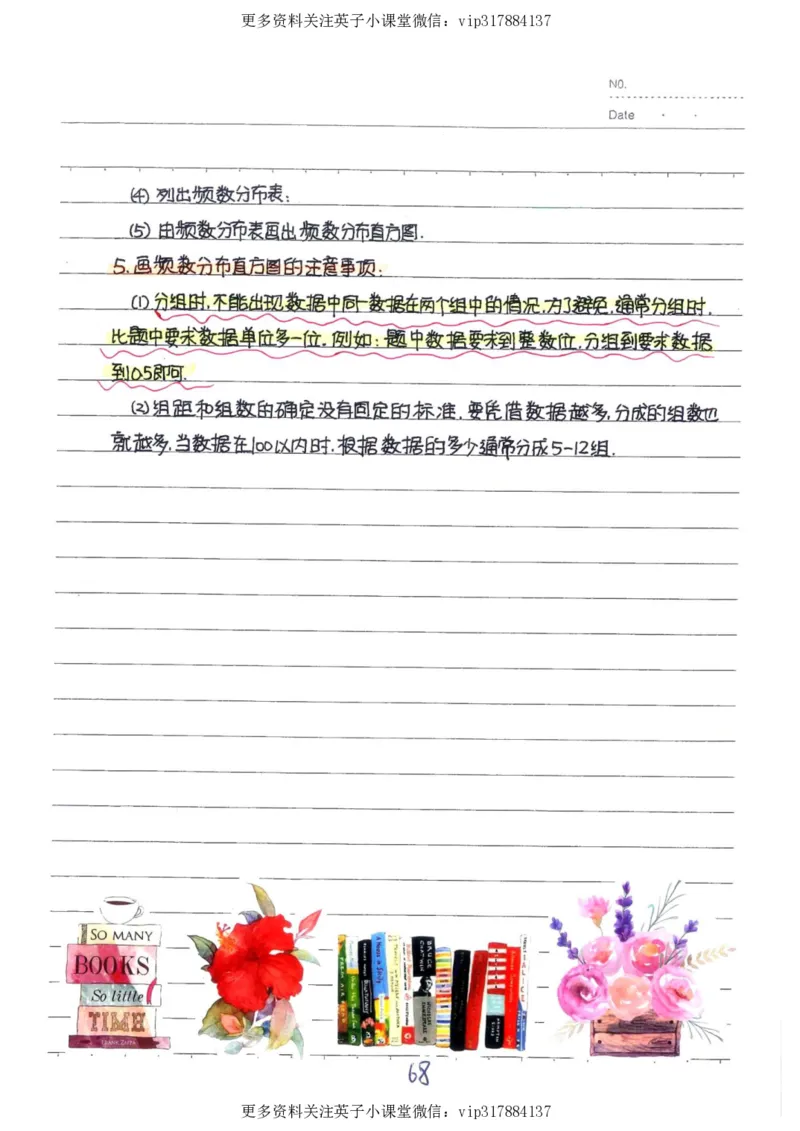 更多资料关注英子小课堂微信：vip317884137
NO.
Date
(4) 列出频数分布表；
(5) 由频数分布表画出频数分布直方图.
5. 画频数分布直方图的注意事项：
(1) 分组时，不能出现数据中同一数据在两个组中的情况，为了避免，通常分组时，
比题中要求数据单位多一位. 例如：题中数据要求到整数位，分组到要求数据
到0.5即可.
(2) 组距和组数的确定没有固定的标准，要凭借数据越多，分成的组数也
就越多，当数据在100以内时，根据数据的多少通常分成5-12组.
SO MANY
BOOKS
So little
TIME
FRANK ZAPPA
68
更多资料关注英子小课堂微信：vip317884137